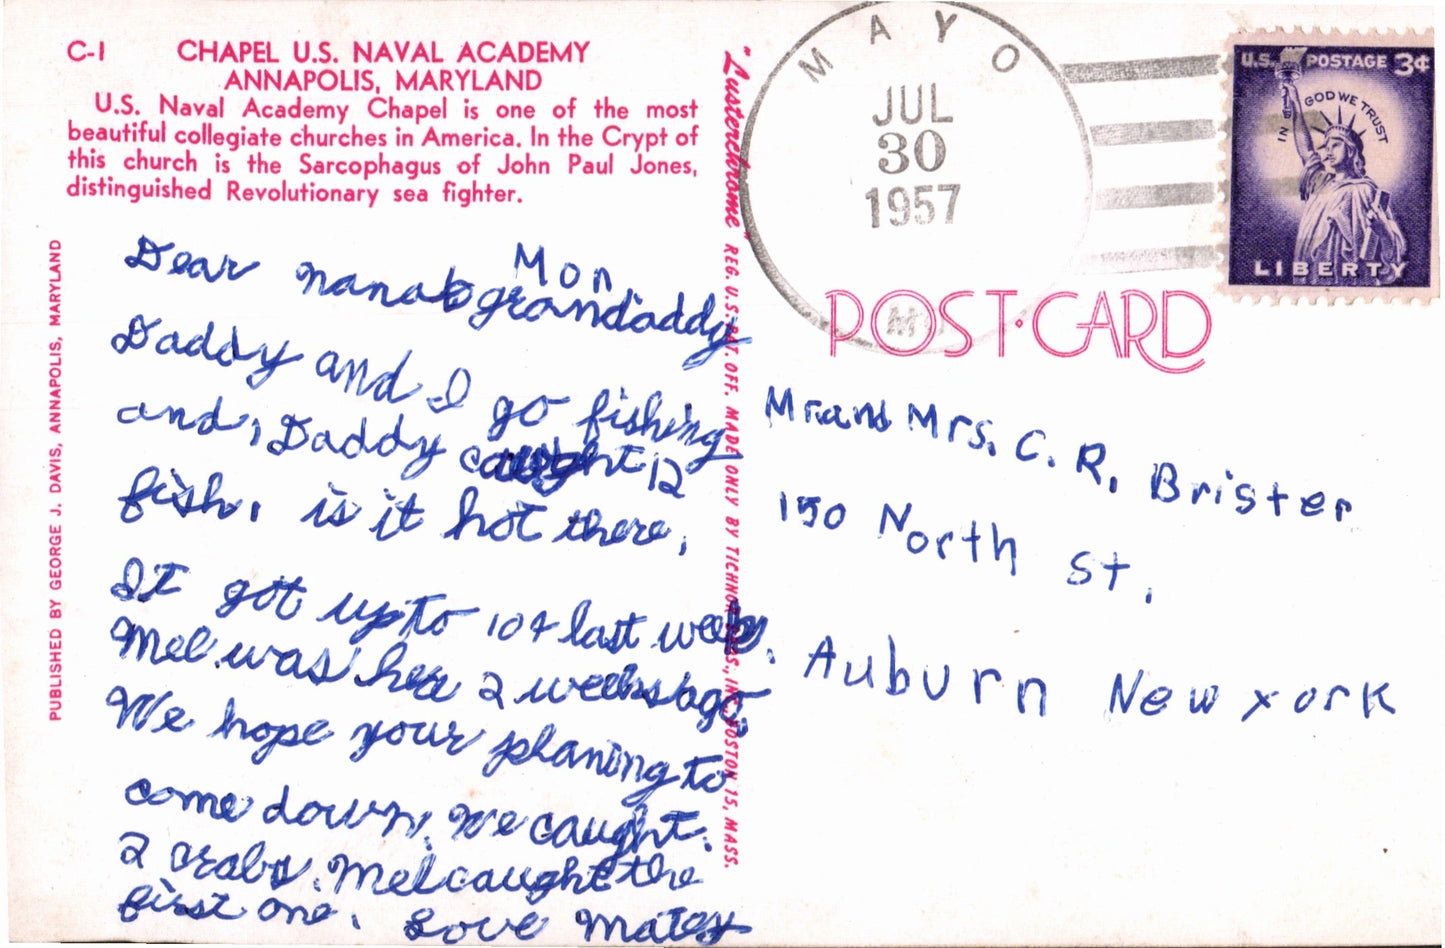 C-1 CHAPEL U.S. NAVAL ACADEMY
ANNAPOLIS, MARYLAND
U.S. Naval Academy Chapel is one of the most
beautiful collegiate churches in America. In the Crypt of
this church is the Sarcophagus of John Paul Jones,
distinguished Revolutionary sea fighter.
PUBLISHED BY GEORGE J. DAVIS, ANNAPOLIS, MARYLAND
Mon.
Dear nana & grandaddy
Daddy and I go fishing
and, Daddy caught 12
fish. is it hot there,
It got up to 104 last week.
Mel was here 2 weeks ago,
We hope your planing to
come down. We caught.
2 crabs. Mel caught the
first one. Love Matey
"Lusterchrome" REG. U.S. PAT. OFF. MADE ONLY BY TICHNOR BROS., INC., BOSTON 15, MASS.
MAYO
JUL
30
1957
MD
U.S. POSTAGE 3¢
IN GOD WE TRUST
LIBERTY
POST·CARD
Mr and Mrs. C. R. Brister
150 North St.
Auburn New york